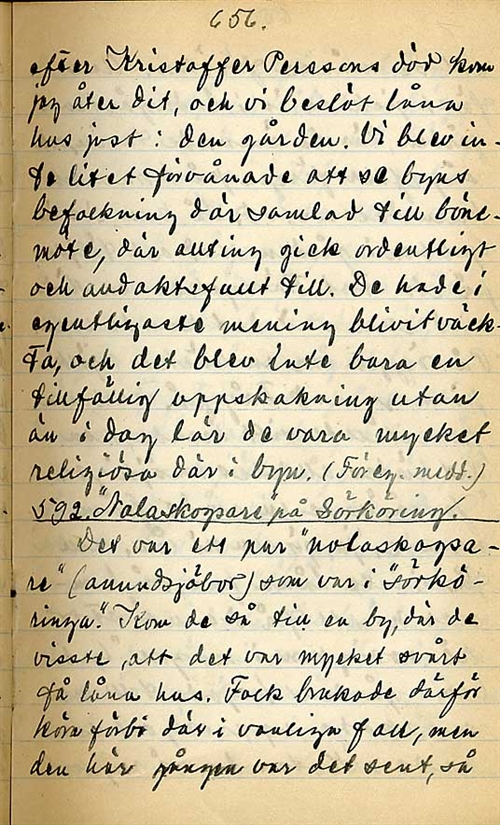 656.
efter Kristoffer Perssons död kom
jag åter dit, och vi beslöt låna
hus just i den gården. Vi blev in-
te litet förvånade att se byns
befolkning där samlad till böne-
möte, där allting gick ordentligt
och andaktsfullt till. De hade i
egentligaste mening blivit väck-
ta, och det blev inte bara en
tillfällig uppskakning utan
än i dag lär de vara mycket
religiösa där i byn. (Föreg. medd.)
592. "Nolaskogsare" på Sörköring.
Det var ett par "nolaskogsa-
re" (anundsjöbor) som var i "sörkö-
ringa". Kom de så till en by, där de
visste, att det var mycket svårt
få låna hus. Folk brukade därför
köra förbi där i vanliga fall, men
den här gången var det sent, så